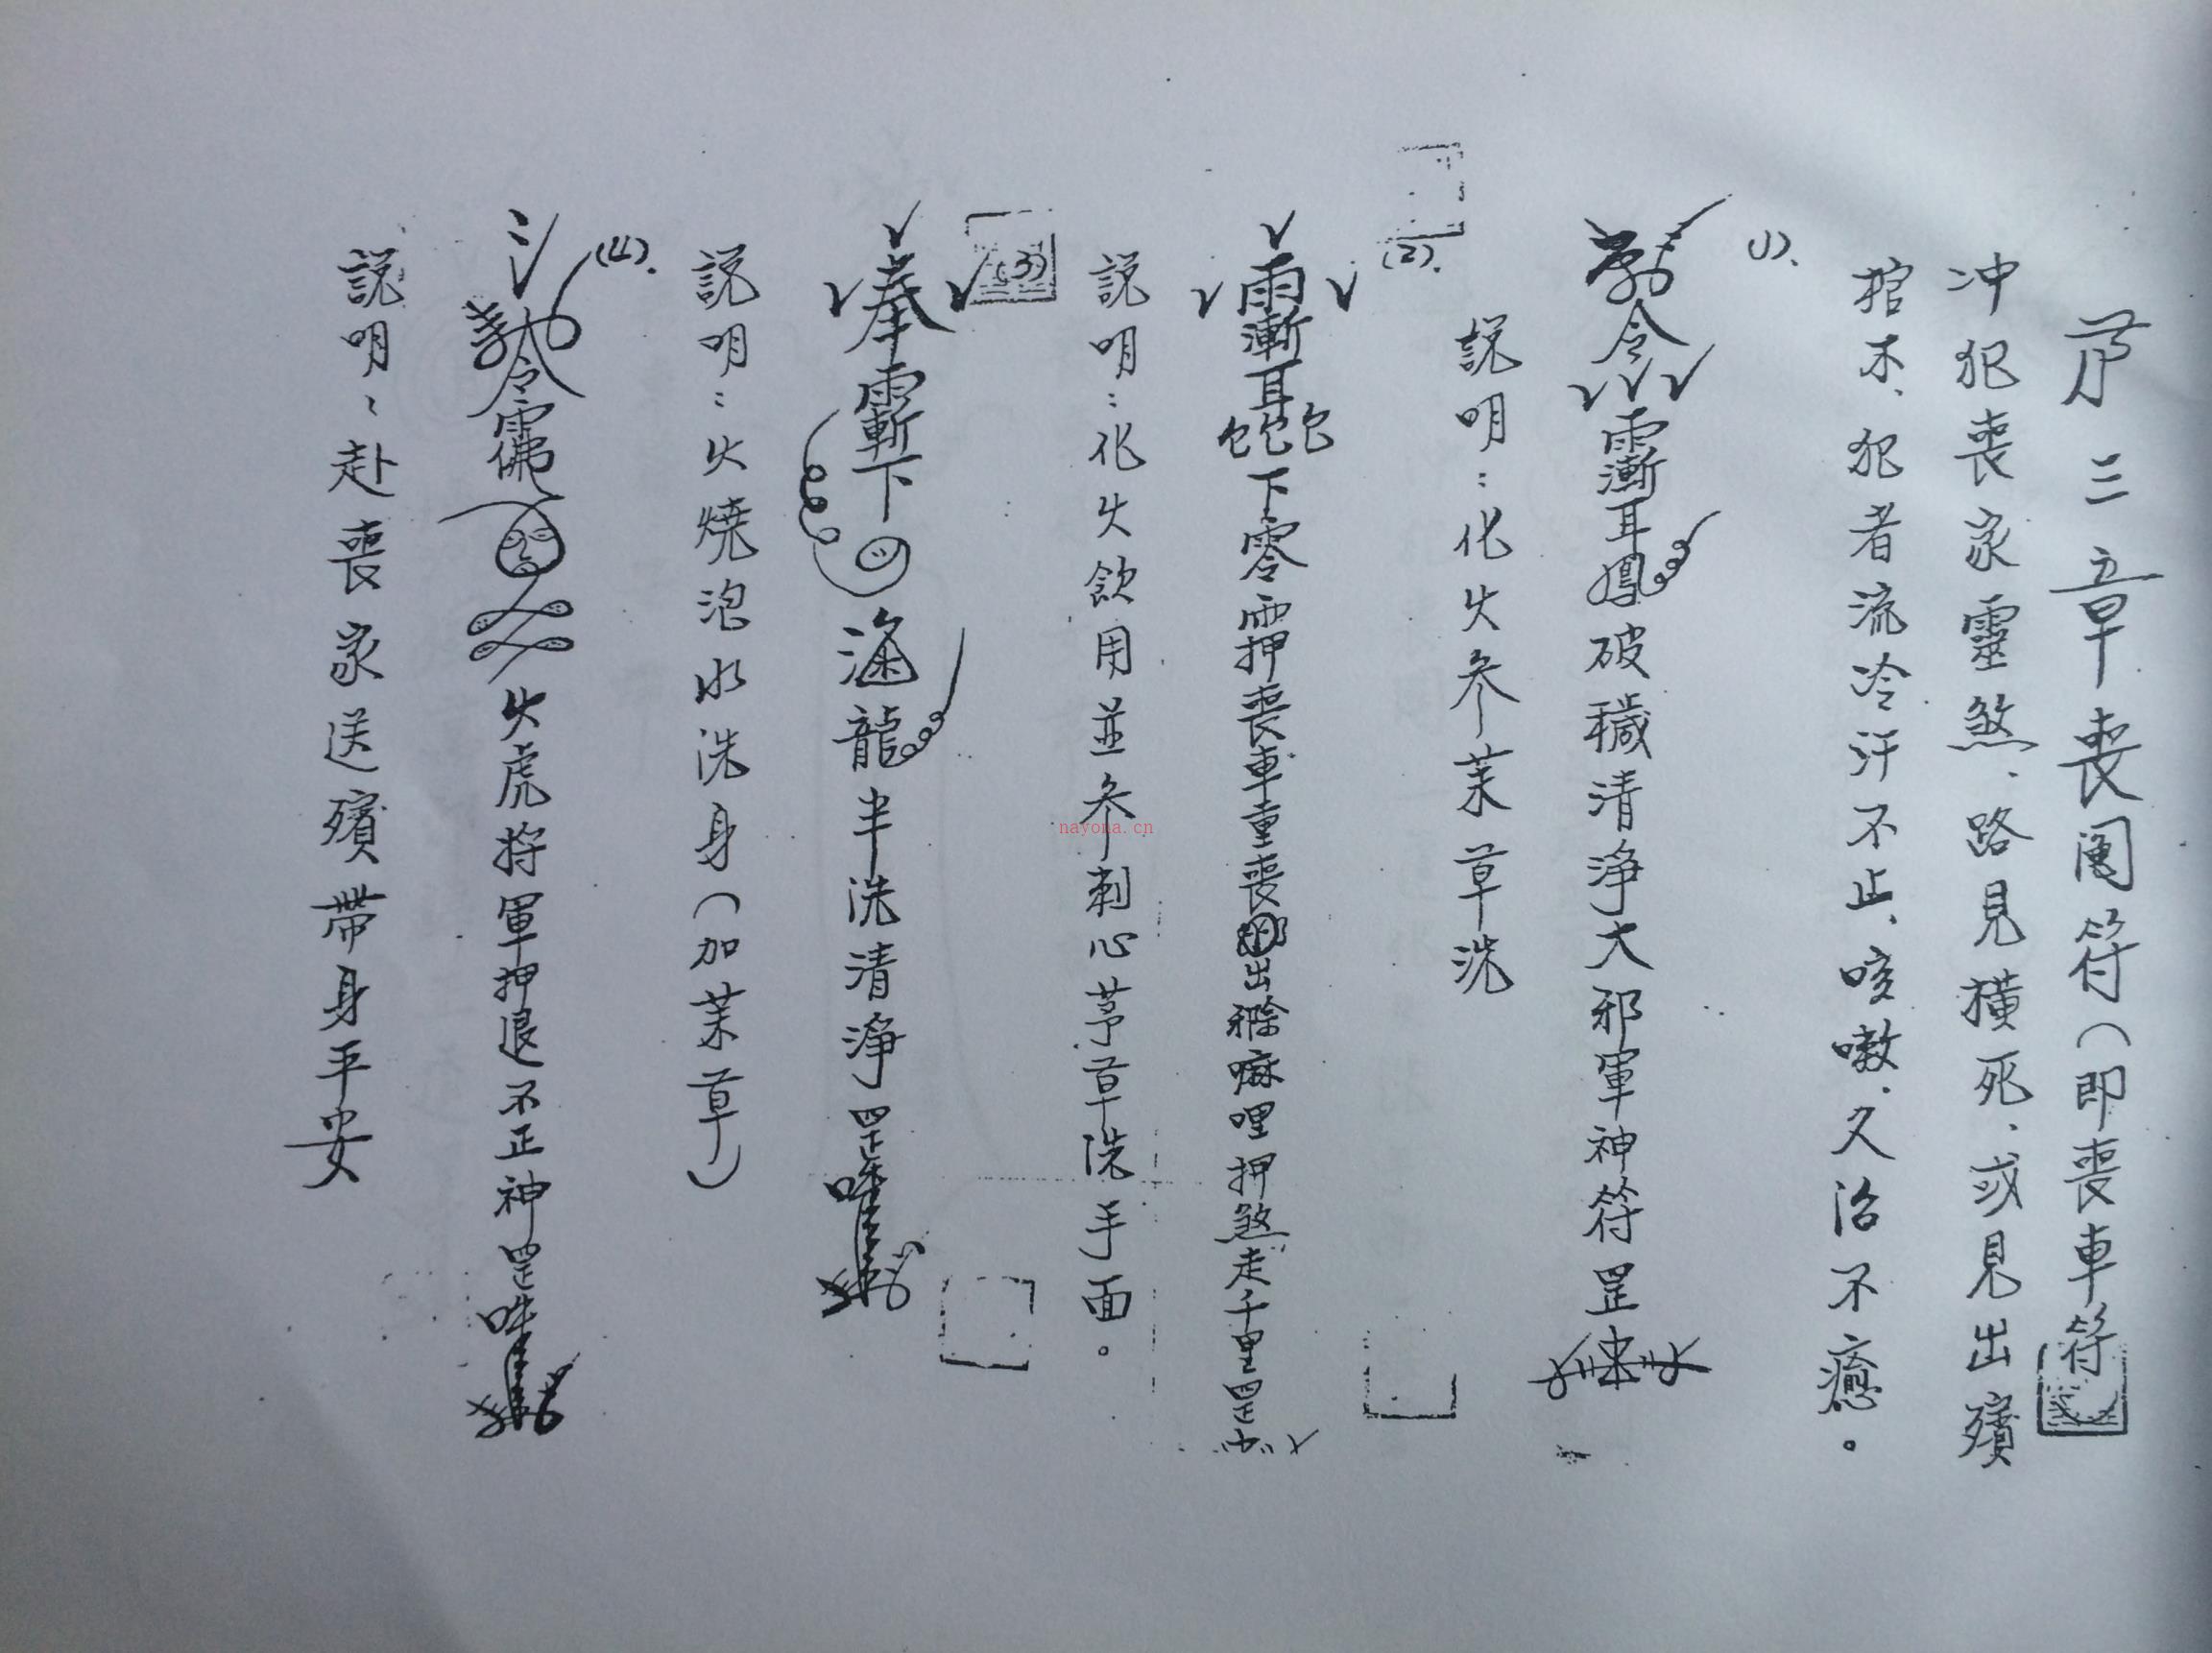 三章喪闖符(即喪車符)
冲犯喪家靈煞、路見横死、或見出殯
棺木、犯者流冷汗不止、咳嗽、久治不癒。
(1)、
勅令 耳 破穢清淨大邪軍神符罡
説明:化火参茉草洗
(2).
雨漸耳 下零 押喪車重喪 出 嘛哩押煞走千里罡
説明:化火飲用並参刺心茅草洗手面。
(3)
奉 下 龍半洗清淨罡
説明:火燒泡水洗身(加茉草)
(4).
勅令 火虎将軍押退不正神罡
説明:赴喪家送殯帶身平安
nayona.cn